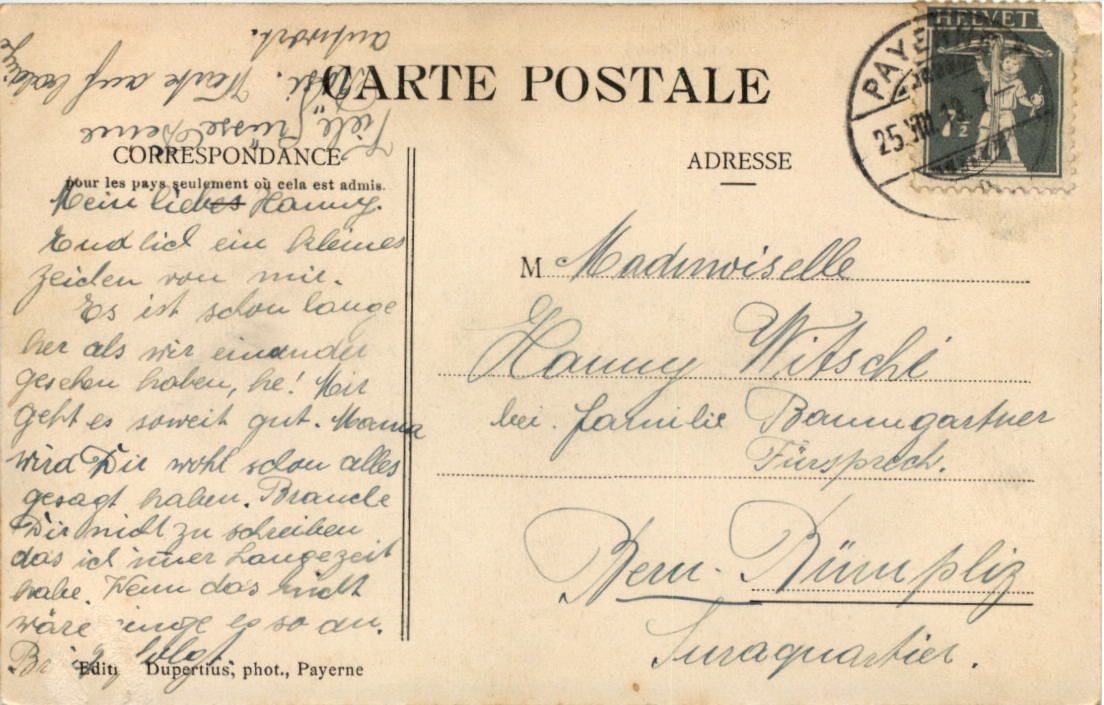 CARTE POSTALE
CORRESPONDANCE
pour les pays seulement où cela est admis.
Mein liebes Hanny.
Endlich ein kleines
zeichen von mir.
Es ist schon lange
her als wir einander
gesehen haben, he! Mir
geht es soweit gut. Mama
wird Dir wohl schon alles
gesagt haben. Brauche
Dir nicht zu schreiben
das ich immer Langezeit
habe. Wenn das nicht
wäre ginge es so an.
folgt.
Viele Grüsse Deine
Rösi. Warte auf baldige
antwort.
Editi Dupertius, phot., Payerne
ADRESSE
M Mademoiselle
Hanny Witschi
bei familie Baumgartner
Fürsprech.
Bern-Bümpliz
Juraquartier.
HELVETI
7½
PAYERNE
25.VIII.13.7